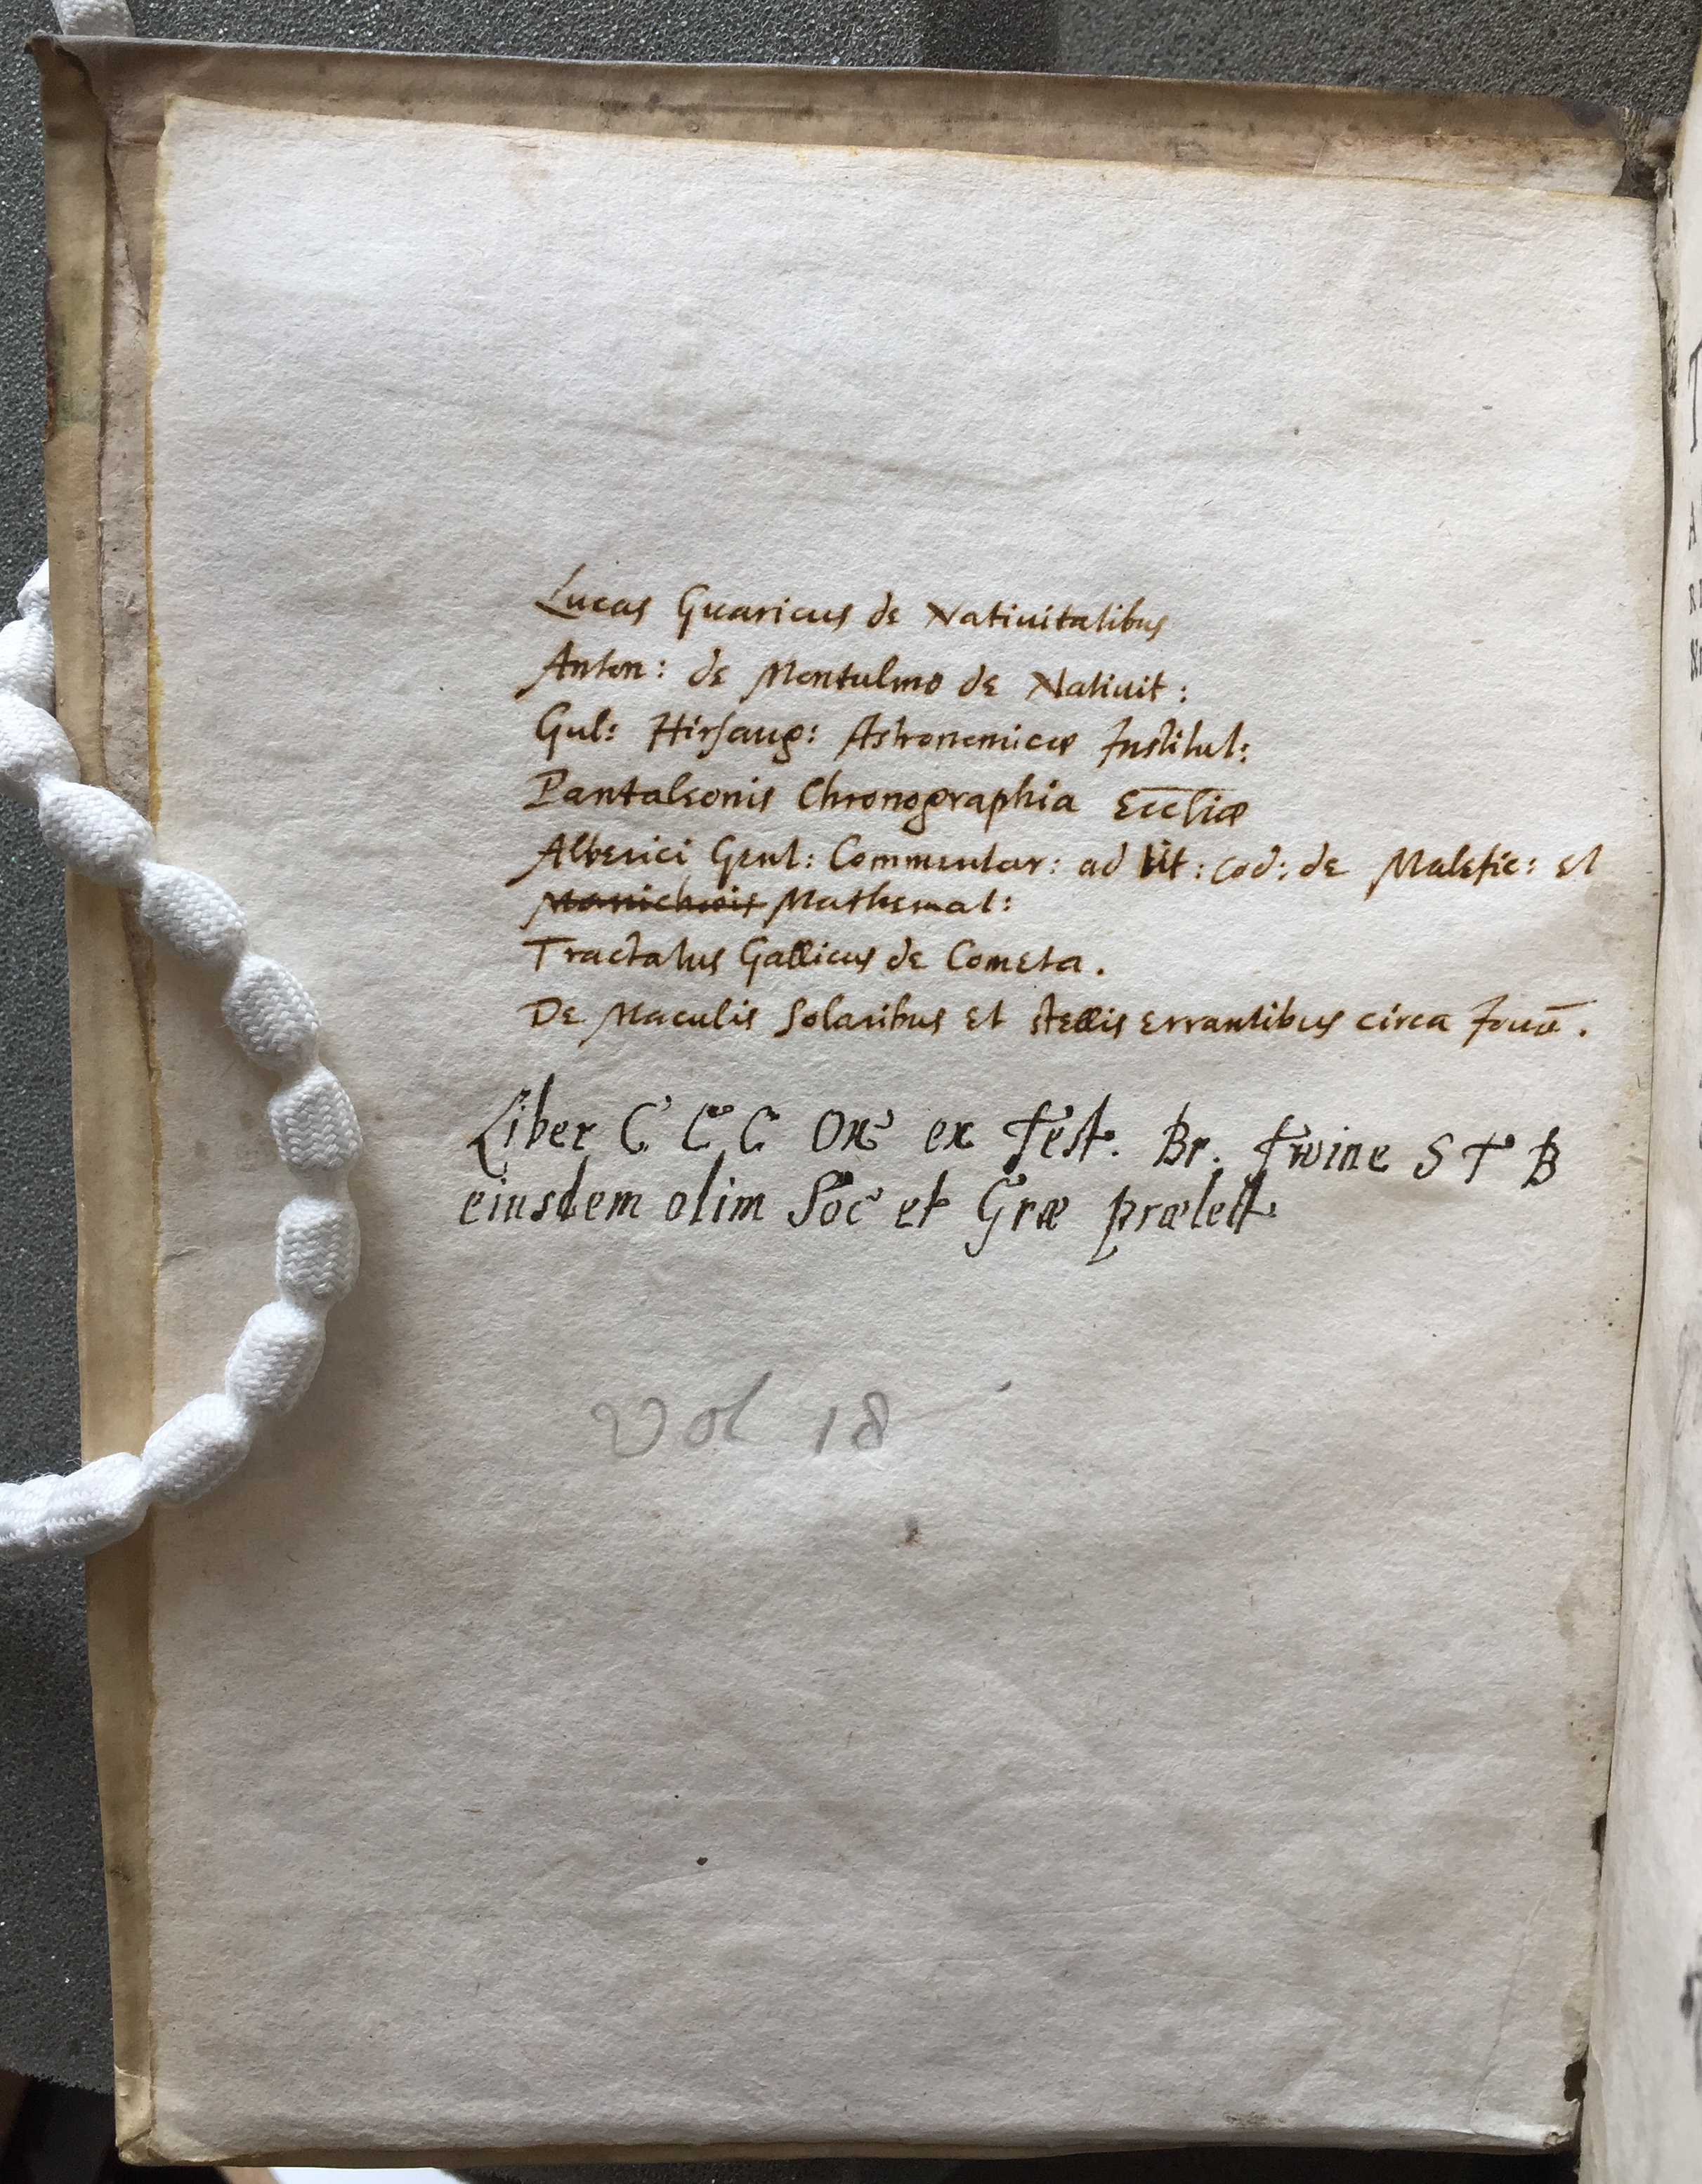 Lucas Guaricus de Nativitatibus
Anton: de Montulmo de Nativit:
Gul: Hirsaug: Astronomicæ Institut:
Pantaleonis Chronographia Eccliæ
Alberici Gent: Commentar: ad tit: Cod: de Malefic: et
Manichæis Mathemat:
Tractatus Gallicus de Cometa.
De Maculis Solaribus et stellis errantibus circa Jouē.
Liber C C C Ox ex Test. Br. Twine S T B
eiusdem olim Soc et Græ prælect.
Vol 18